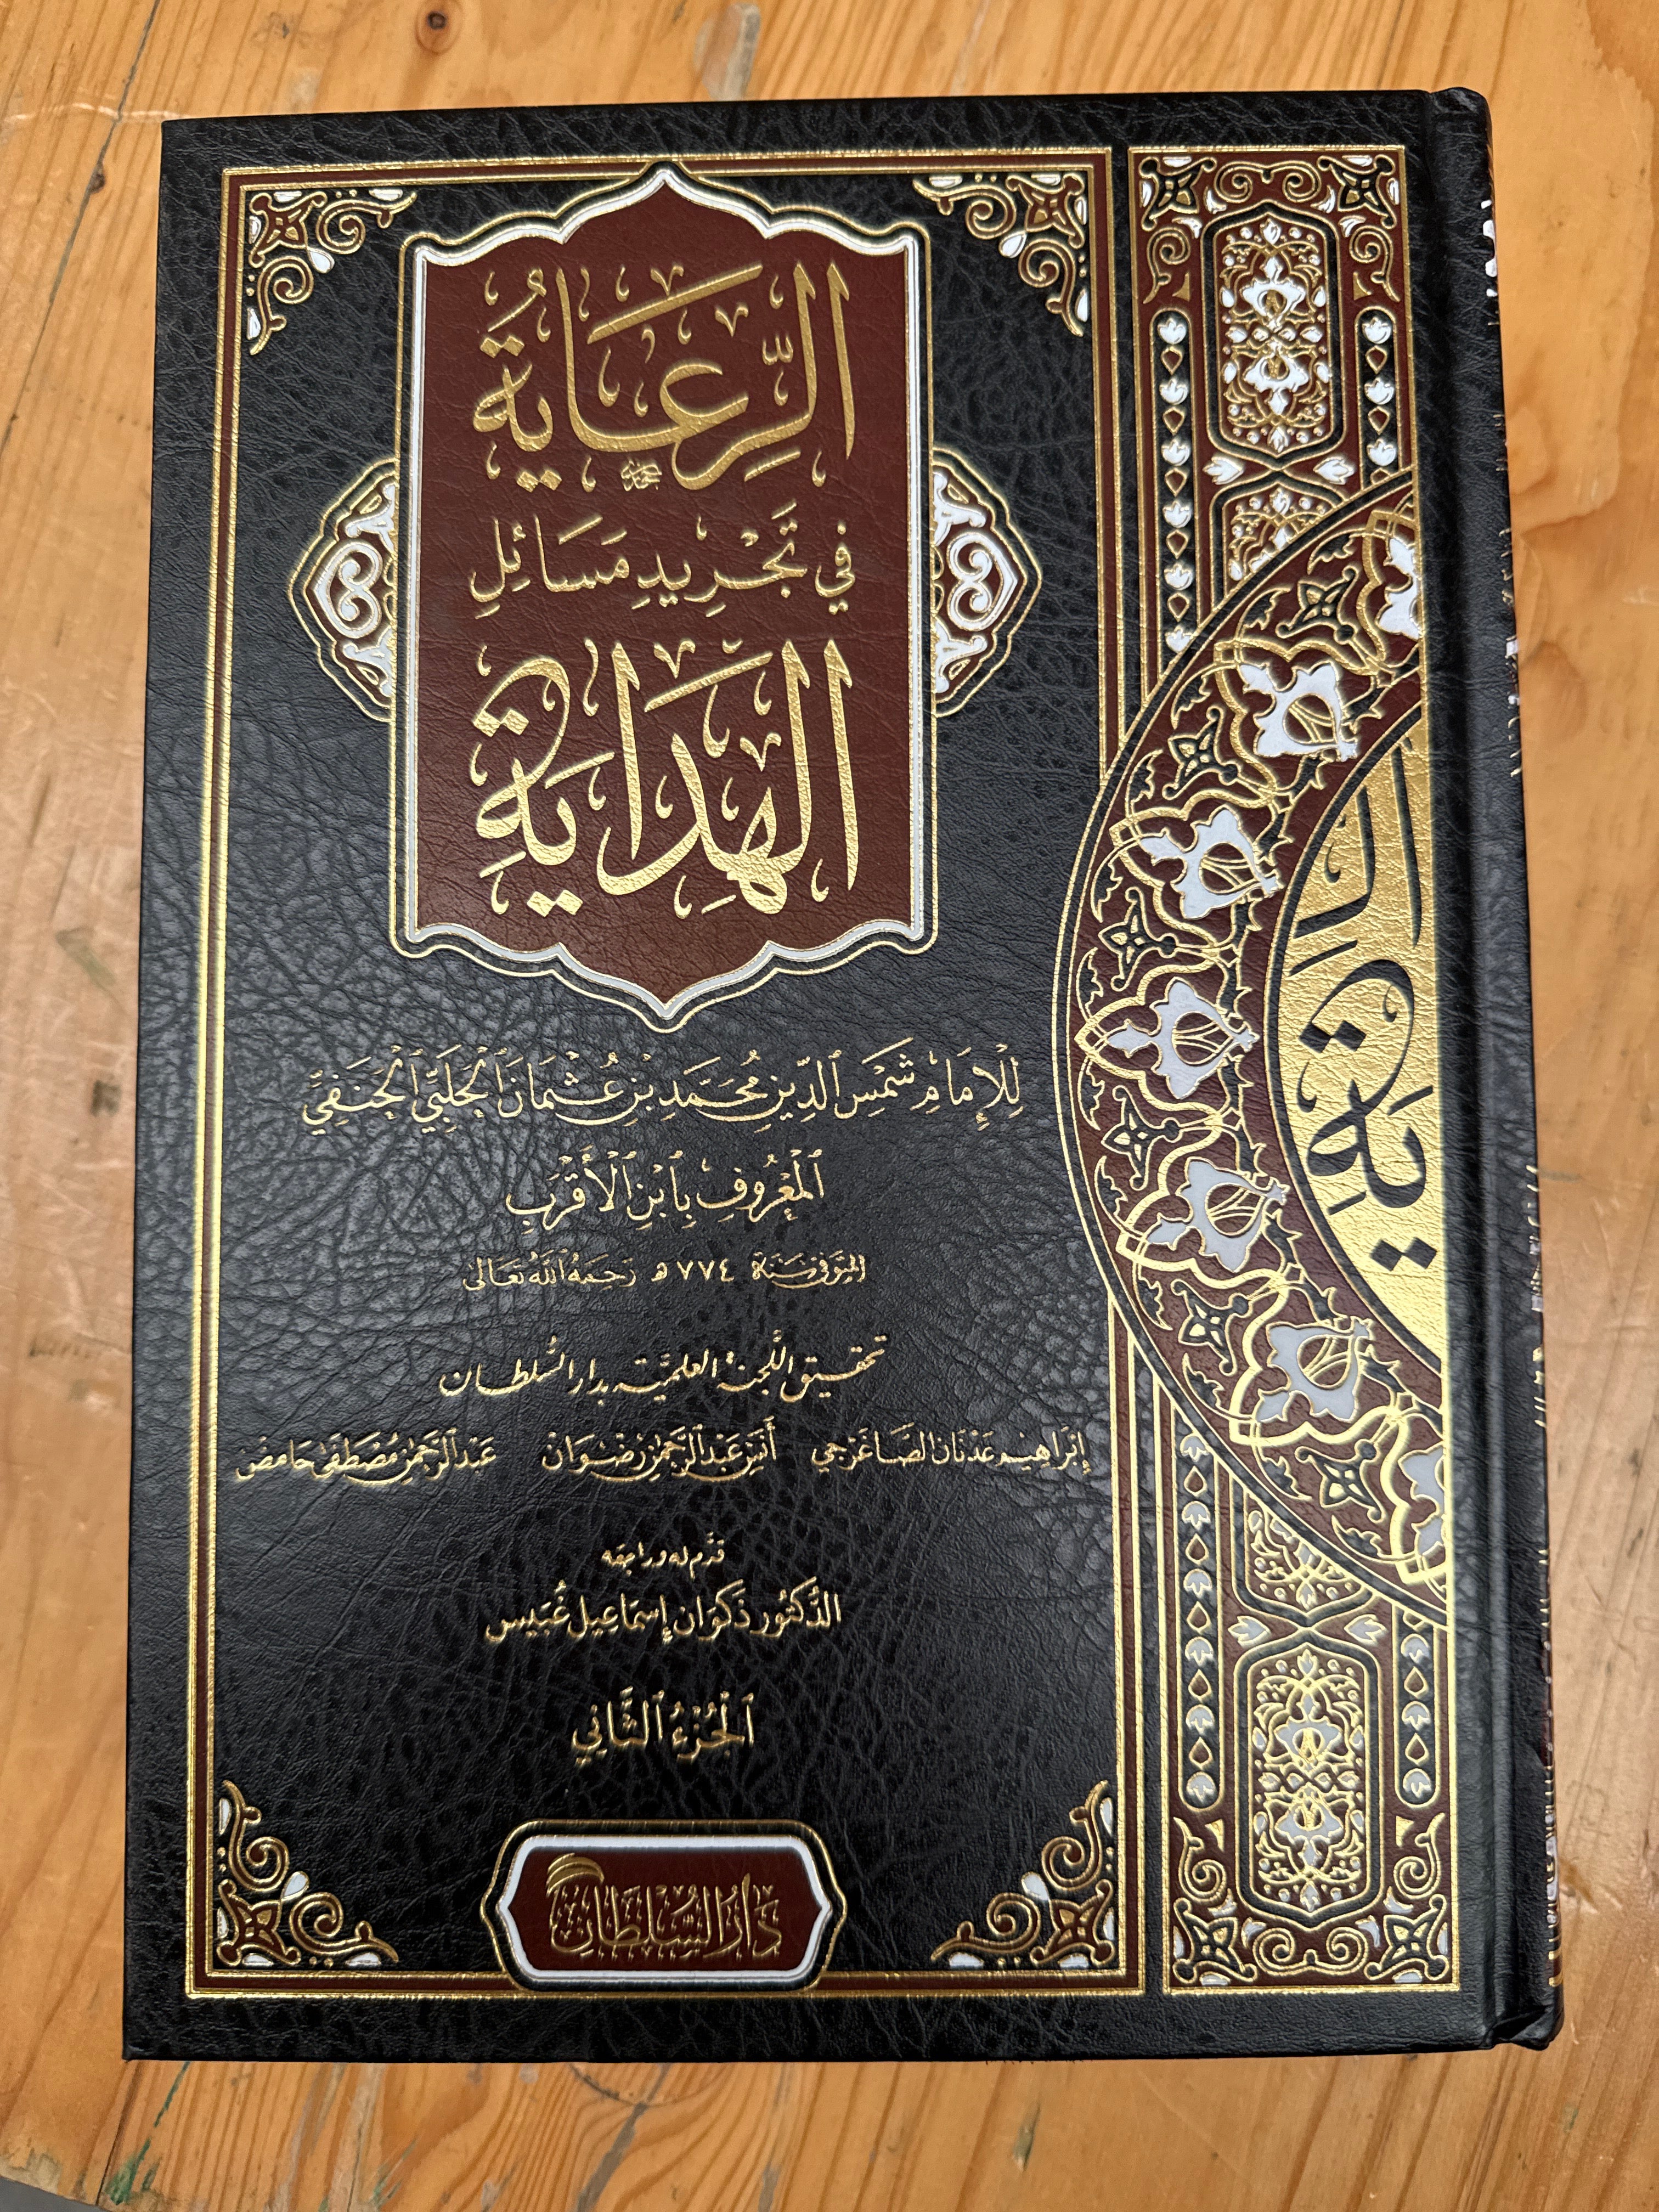 الرِّعَايَةُ
فِي تَجْرِيدِ مَسَائِلِ
الهِدَايَةِ
لِلْإِمَامِ شَمْسِ الدِّينِ مُحَمَّدِ بْنِ عُثْمَانَ الْحَلَبِيِّ الْحَنَفِيِّ
الْمَعْرُوفِ بِابْنِ الْأَقْرَبِ
المتوفى سَنَة ٧٧٤ هـ رَحِمَهُ اللَّهُ تَعَالَى
تحقيق اللَّجنة العلميَّة بدار السُّلطان
إبْرَاهِيم عَدْنَان الصَّاغَرْجِي أَنَس عَبْد الرَّحْمٰن رِضْوَان عَبْد الرَّحْمٰن مُصْطَفَى حَامِض
قدَّم له وراجعه
الدُّكتُور ذَكوَان إِسْمَاعِيل غُبَيس
اَلْجُزْءُ الثَّانِي
دَارُ السُّلْطَان